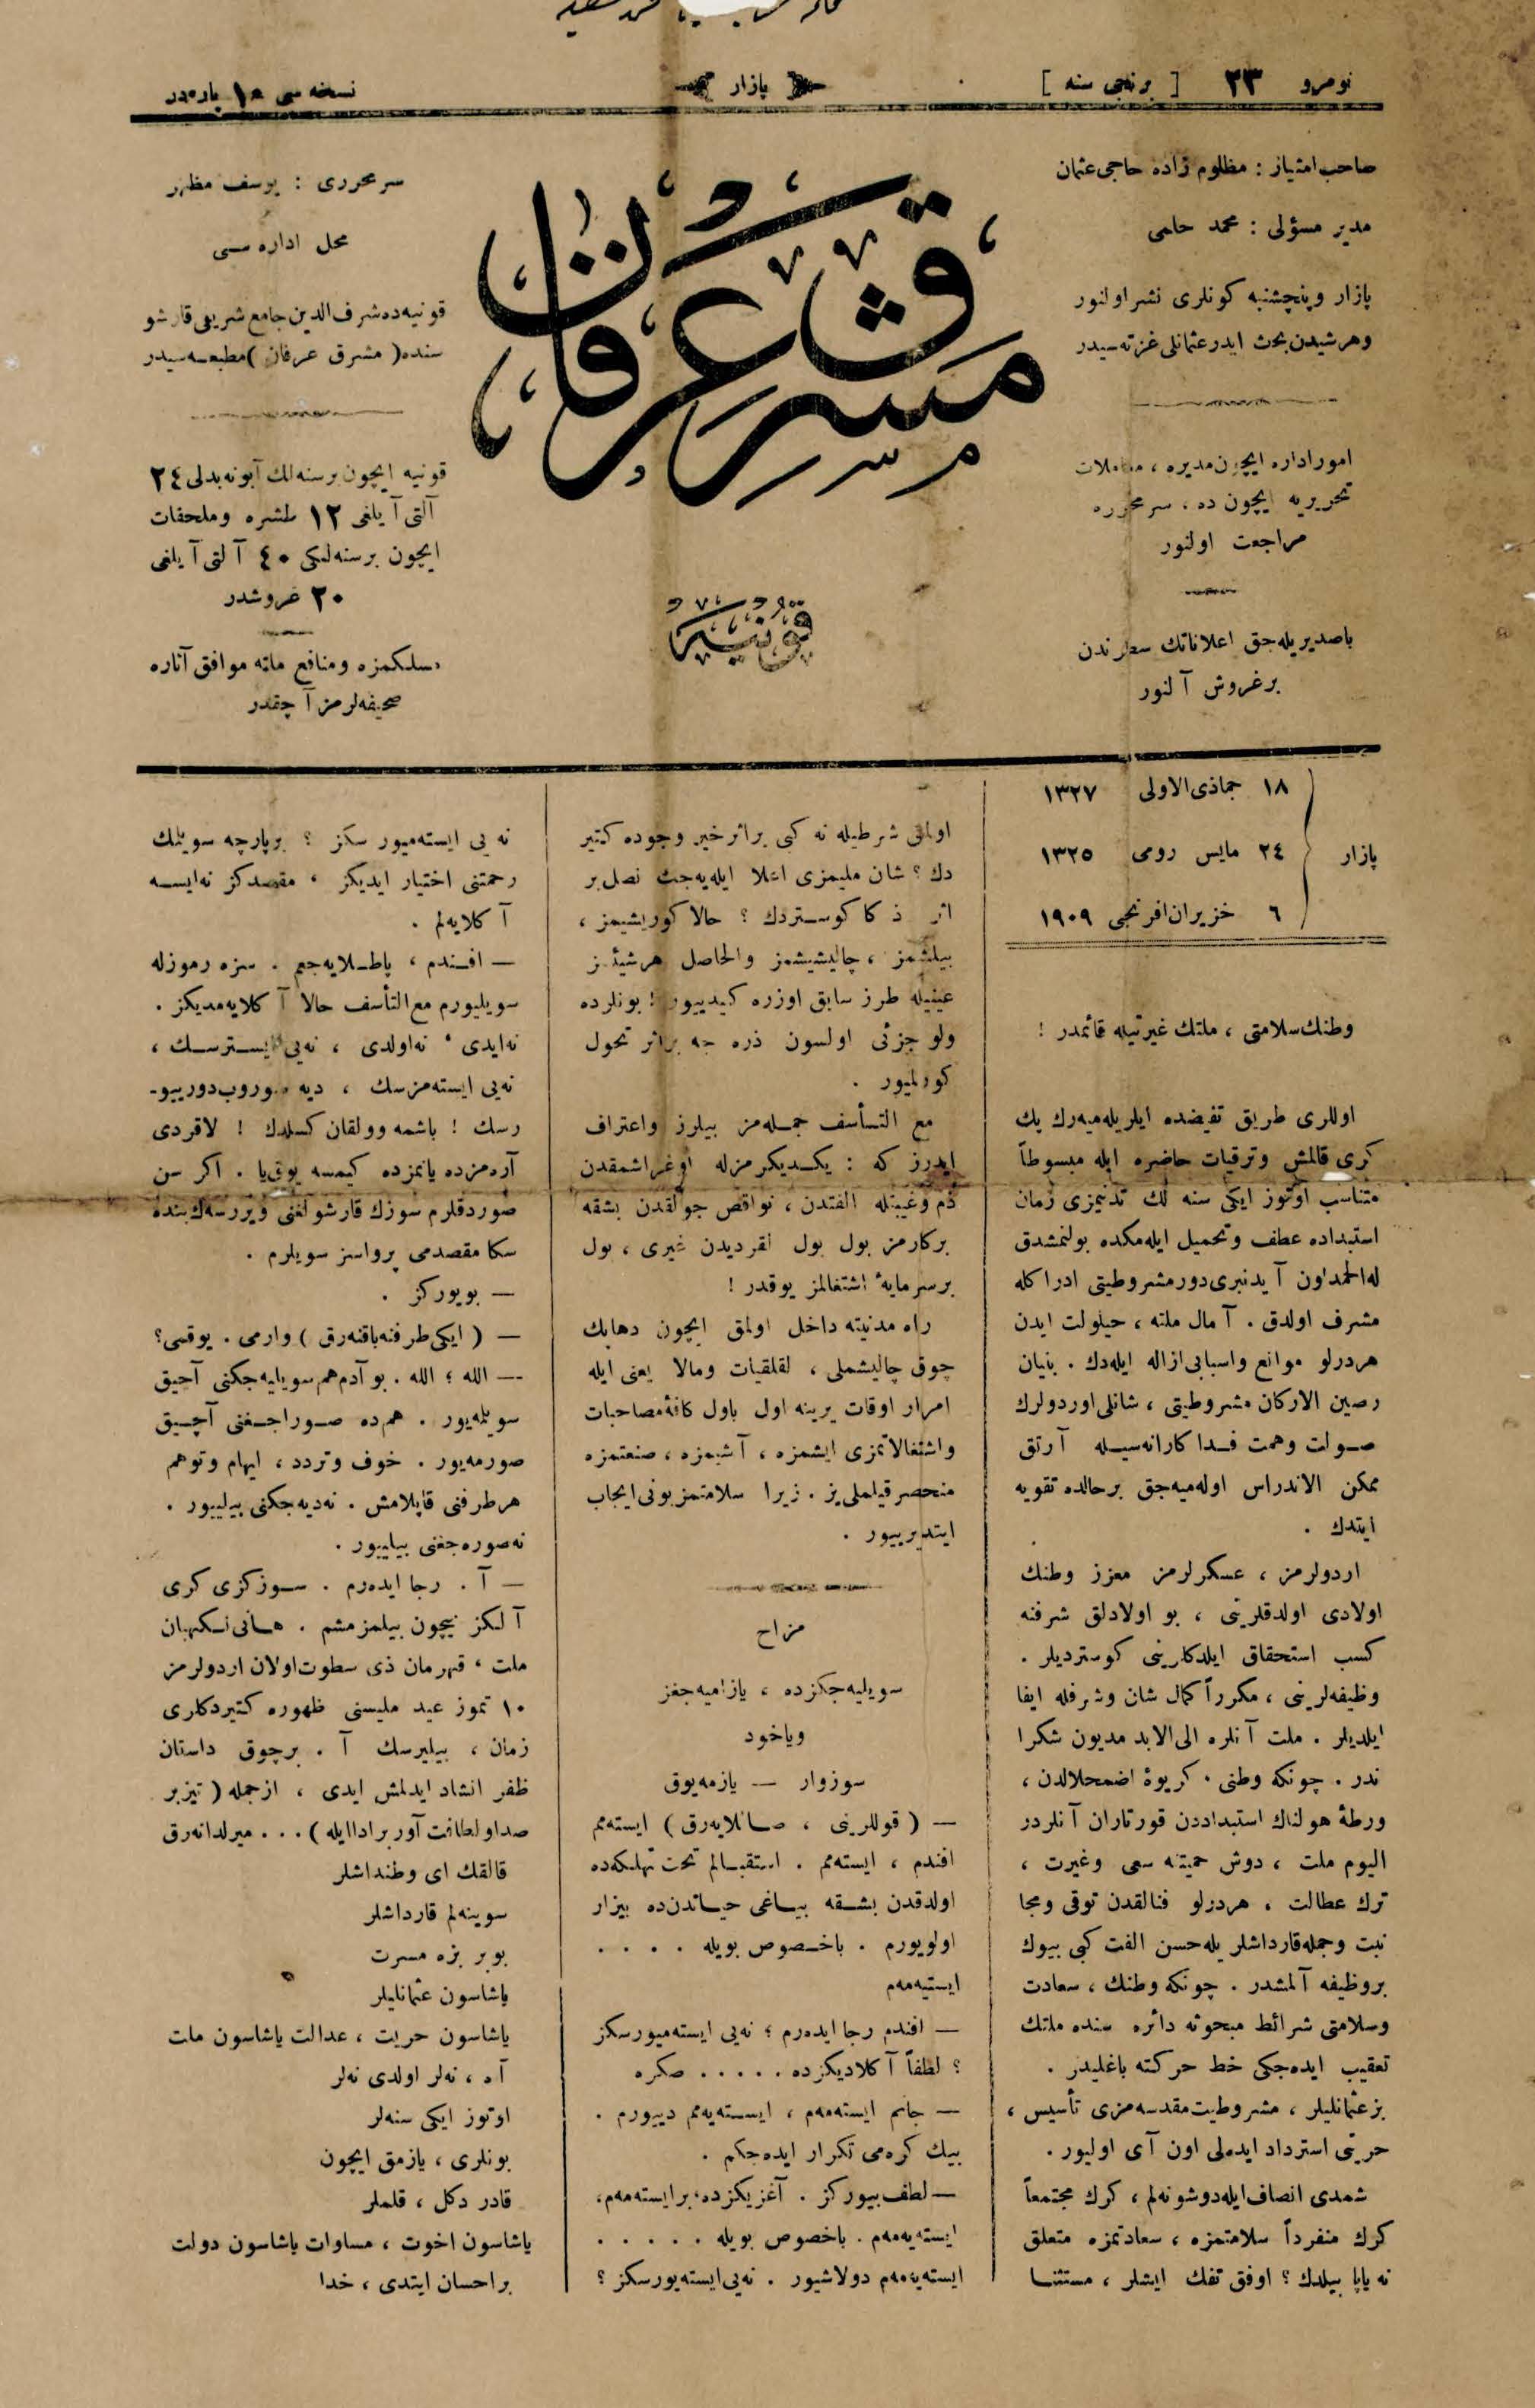 نومرو ٢٣ [ برنجی سنه ]
پازار
نسخه سی ١٠ پاره‌در
صاحب امتیاز : مظلوم زاده حاجی عثمان
مدیر مسؤلی : محمد حلمی
پازار وپنچشنبه کونلری نشر اولنور
وهرشیدن بحث ایدر عثمانلی غزته‌سیدر
امور اداره ایچون مدیره ، معاملات
تحریریه ایچون ده ، سرمحرره
مراجعت اولنور
باصدیریله‌جق اعلاناتك سطرندن
برغروش آلنور
مشرق عرفان
قونیه
سرمحرری : یوسف مظهر
محل اداره سی
قونیه‌ده شرف الدین جامع شریفی قارشو
سنده ( مشرق عرفان ) مطبعه‌سیدر
قونیه ایچون برسنه‌لك آبونه بدلی ٢٤
آلتی آیلغی ١٢ طشره وملحقات
ایچون برسنه‌لكی ٤٠ آلتی آیلغی
٢٠ غروشدر
مسلكمزه ومنافع ملته موافق آثاره
صحیفه‌لرمز آچقدر
١٨ جماذی الاولی ١٣٢٧
پازار ٢٤ مایس رومی ١٣٢٥
٦ خزیران افرنجی ١٩٠٩
وطنك سلامتی ، ملتك غیرتیله قائمدر !
اوللری طریق تفیضده ایلریله‌میه‌رك پك
كری قالمش وترقیات حاضره ایله مبسوطاً
متناسب اوتوز ایكی سنه لك تدنیمزی زمان
استبداده عطف وتحمیل ایله‌مكده بولنمشدق
له‌الحمد اون آیدنبری دور مشروطیتی ادراكله
مشرف اولدق . آمال ملته ، حیلولت ایدن
هردرلو موانع واسبابی ازاله ایله‌دك . بنیان
رصین الاركان مشروطیتی ، شانلی اوردولرك
صولت وهمت فداكارانه‌سیله آرتق
ممكن الاندراس اوله‌میه‌جق برحالده تقویه
ایتدك .
اردولرمز ، عسكرلرمز معزز وطنك
اولادی اولدقلرینی ، بو اولادلق شرفنه
كسب استحقاق ایلدكلرینی كوستردیلر .
وظیفه‌لرینی ، مكرراً كمال شان وشرفله ایفا
ایلدیلر . ملت آنلره الی الابد مدیون شكرا
ندر . چونكه وطنی ، كریوهٔ اضمحلالدن ،
ورطهٔ هولناك استبداددن قورتاران آنلردر
الیوم ملت ، دوش حمیتنه سعی وغیرت ،
ترك عطالت ، هردرلو فنالقدن توقی ومجا
نبت وجمله قارداشلریله حسن الفت كبی بیوك
بروظیفه آلمشدر . چونكه وطنك ، سعادت
وسلامتی شرائط مبحوثه دائره سنده ملتك
تعقیب ایده‌جكی خط حركته باغلیدر .
بز عثمانلیلر ، مشروطیت مقدسه‌مزی تأسیس ،
حریتی استرداد ایده‌لی اون آی اولیور .
شمدی انصاف ایله دوشونه‌لم ، كرك مجتمعاً
كرك منفرداً سلامتمزه ، سعادتمزه متعلق
نه یاپا بیلدك ؟ اوفق تفك ایشلر ، مستثنا
اولمق شرطیله نه كبی براثر خیر وجوده كتیر
دك ؟ شان ملیمزی اعلا ایله‌یه‌جك نصل بر
اثر ذكا كوستردك ؟ حالا كوریشیمز ،
بیلشمز ، چالیشیشمز والحاصل هرشیئمز
عینیله طرز سابق اوزره كیدییور ! بونلرده
ولو جزئی اولسون ذره جه براثر تحول
كورلمیور .
مع التسأسف جمله‌مز بیلرز واعتراف
ایدرز كه : یكدیكرمزله اوغراشمقدن
ذم وغیبتله الفتدن ، نواقص جولقدن بشقه
بركارمز بول بول لقردیدن غیری ، بول
برسرمایهٔ اشتغالمز یوقدر !
راه مدنیته داخل اولمق ایچون دهاپك
چوق چالیشملی ، لقلقیات ومالا یعنی ایله
امرار اوقات یرینه اول باول كافهٔ مصاحبات
واشتغالاتمزی ایشمزه ، آشیمزه ، صنعتمزه
منحصر قیلملی‌یز . زیرا سلامتمز بونی ایجاب
ایتدیرییور .
مزاح
سویلیه‌جكزده ، یازامیه‌جغز
ویاخود
سوزوار — یازمه‌یوق
— ( قوللرینی ، صاللایه‌رق ) ایسته‌مم
افندم ، ایسته‌مم . استقبالم تحت تهلكه‌ده
اولدقدن بشقه بیاغی حیاتدن‌ده بیزار
اولویورم . باخصوص بویله . . . .
ایستیه‌مه‌م
— افندم رجا ایده‌رم ؛ نه‌یی ایسته‌میورسكز
؟ لطفاً آكلادیكزده . . . . . صكره
— جانم ایسته‌مه‌م ، ایسته‌یه‌مم دییورم .
بیك كره‌می تكرار ایده‌جكم .
— لطف بیوركز . آغزیكزده ، بر ایسته‌مه‌م ،
ایسته‌یه‌مه‌م . باخصوص بویله . . . . .
ایسته‌یه‌مه‌م دولاشیور . نه‌یی ایسته‌یورسكز ؟
نه یی ایسته‌میور سكز ؟ برپارچه سویلمك
رحمتنی اختیار ایدیكز ، مقصدكز نه‌ایسه
آكلایه‌لم .
— افندم ، پاطلایه‌جغم . سزه رموزله
سویلیورم مع التأسف حالا آكلایه‌مدیكز .
نه‌ایدی ، نه‌اولدی ، نه‌یی ایسترسك ،
نه‌یی ایسته‌مزسك ، دیه صوروب دوریيو-
رسك ! باشمه وولقان كسلدك ! لاقردی
آره‌مزده یانمزده كیمسه یوق‌یا . اكر سن
صوردقلرم سوزك قارشولغنی ویررسه‌ك بنده
سكا مقصدمی پرواسز سویلرم .
— بویوركز .
— ( ایكی طرفنه باقنه‌رق ) وارمی . یوقمی؟
— الله ؛ الله . بو آدم هم سویلیه‌جكنی آچیق
سویله‌یور . هم‌ده صوراجغنی آچیق
صورمه‌یور . خوف وتردد ، ایهام وتوهم
هر طرفنی قاپلامش . نه‌دیه‌جكنی بیلیيور .
نه‌صوره‌جغنی بیلیيور .
— آ . رجا ایده‌رم . سوزكزی كری
آلكز نیچون بیلمزمشم . هانی نكهبان
ملت ، قهرمان ذی سطوت اولان اردولرمز
١٠ تموز عید ملیسنی ظهوره كتیردكلری
زمان ، بیلیرسك آ . برچوق داستان
ظفر انشاد ایدلمش ایدی ، ازجمله ( تیزبر
صدا ولطافت آور برادا ایله ) . . . میرلدانه‌رق
قالقك ای وطنداشلر
سوینه‌لم قارداشلر
بوبر بزه مسرت
یاشاسون عثمانلیلر
یاشاسون حریت ، عدالت یاشاسون ملت
آه ، نه‌لر اولدی نه‌لر
اوتوز ایكی سنه‌لر
بونلری ، یازمق ایچون
قادر دكل ، قلملر
یاشاسون اخوت ، مساوات یاشاسون دولت
براحسان ایتدی ، خدا